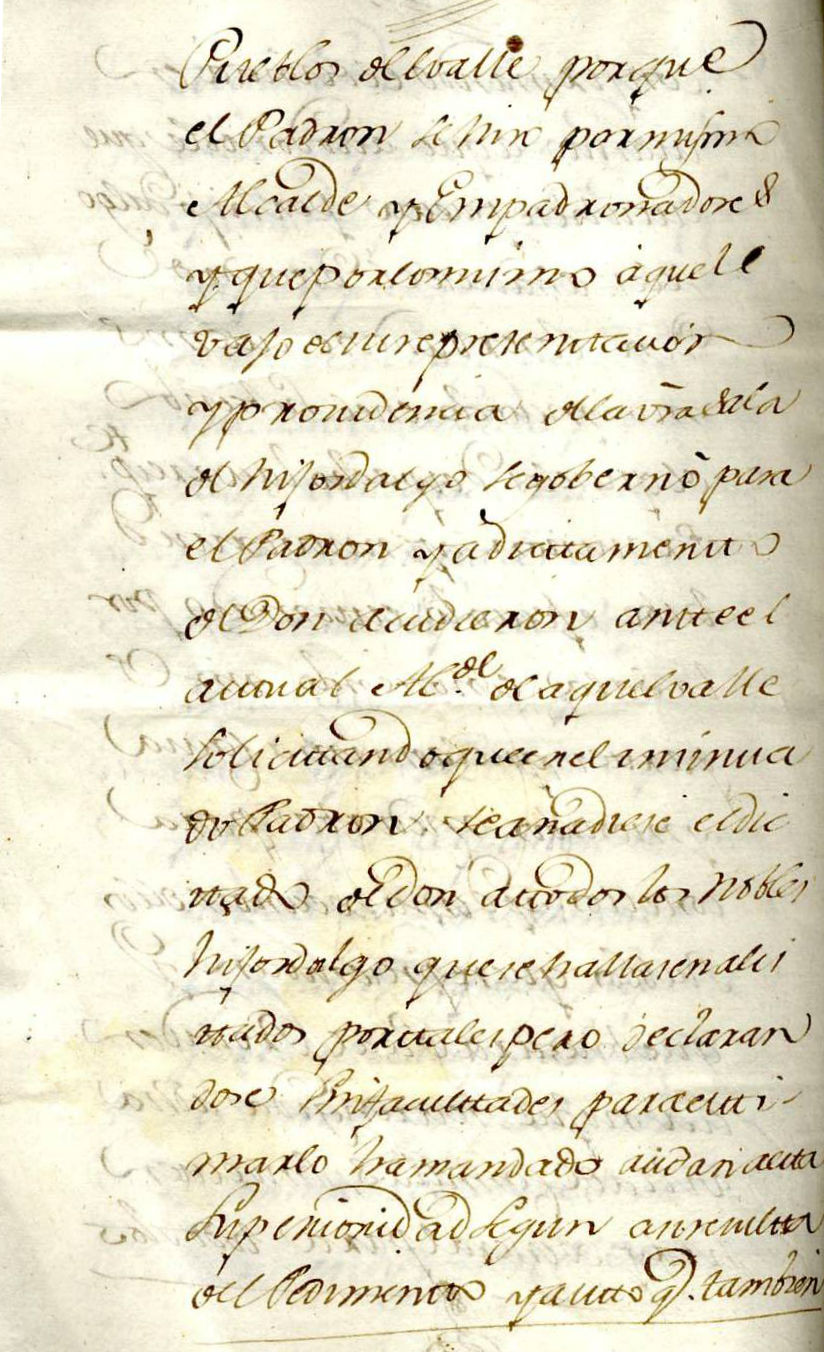 Pueblos del valle porque
el Padron se hizo por un mismo
Alcalde y Empadronadores
y que por lo mismo aquel
vajo de su representacion
y providencia de la vra Sala
de hijosdalgo se governò para
el Padron y adictamento
de Don acudieron antte el
actual Alc.de de aquel valle
solicitando que en el insinua
do Padron se añadiese el dic
ttado de don a ttodos los nobles
hijosdalgo que se hallasen alis
ttados por tales pero declaran
dose sin facultades para esti-
marlo ha mandado acudan a esta
Superioridad segun asi resultta
del Pedimento y autto q.e tambien